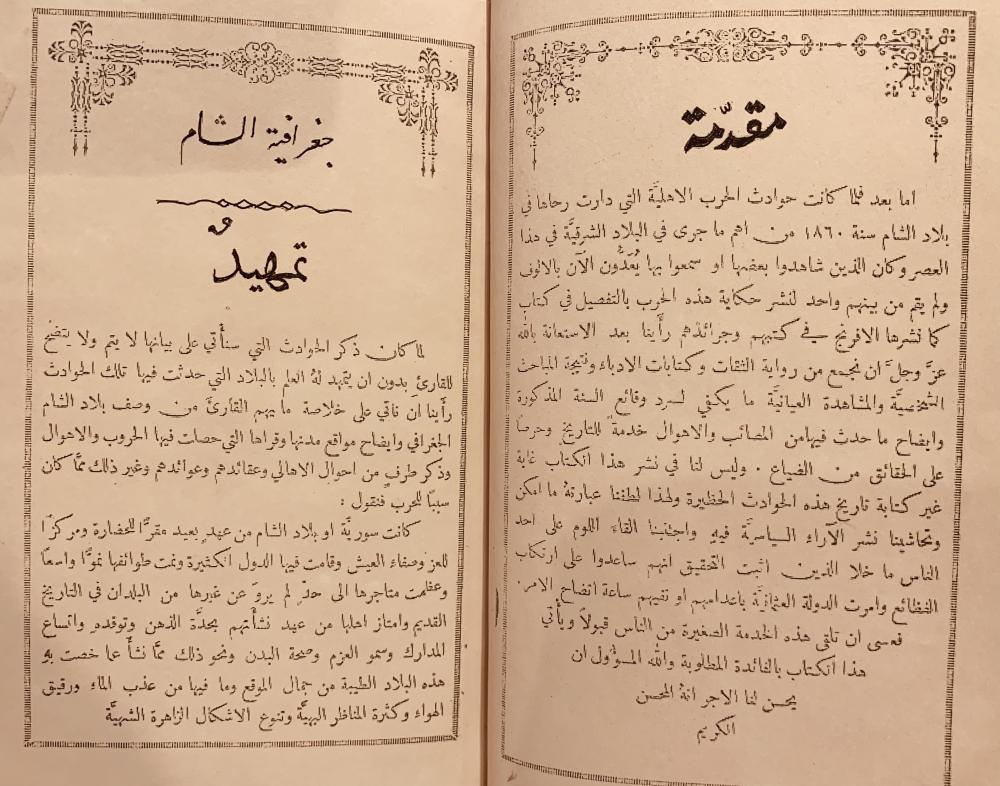 مقدّمة
اما بعد فلما كانت حوادث الحرب الاهليَّة التي دارت رحاها في
بلاد الشام سنة ١٨٦٠ من اهم ما جرى في البلاد الشرقيَّة في هذا
العصر وكان الذين شاهدوا بعضها او سمعوا بها يُعَدُّون الآن بالالوف
ولم يقم من بينهم واحد لنشر حكاية هذه الحرب بالتفصيل في كتاب
كما نشرها الافرنج في كتبهم وجرائدهم رأَينا بعد الاستعانة بالله
عزَّ وجلَّ ان نجمع من رواية الثقات وكتابات الادباء ونتيجة المباحث
الشخصيَّة والمشاهدة العيانيَّة ما يكفي لسرد وقائع السنة المذكورة
وايضاح ما حدث فيها من المصائب والاهوال خدمةً للتاريخ وحرصاً
على الحقائق من الضياع . وليس لنا في نشر هذا الكتاب غاية
غير كتابة تاريخ هذه الحوادث الخطيرة ولهذا لطفنا عبارتهُ ما امكن
وتحاشينا نشر الآراء السياسيَّة فيهِ واجتنبنا القاء اللوم على احد
الناس ما خلا الذين اثبت التحقيق انهم ساعدوا على ارتكاب
الفظائع وامرت الدولة العثمانيَّة باعدامهم او نفيهم ساعة اتضاح الامر .
فعسى ان تلقى هذه الخدمة الصغيرة من الناس قبولاً ويأْتي
هذا الكتاب بالفائدة المطلوبة والله المسؤول ان
يحسن لنا الاجر انهُ المحسن
الكريم
جغرافية الشام
تمهيدٌ
لما كان ذكر الحوادث التي سنأْتي على بيانها لا يتم ولا يتضح
للقارئ بدون ان يتمهد لهُ العلم بالبلاد التي حدثت فيها تلك الحوادث
رأَينا ان ناتي على خلاصة ما يهم القارئَ من وصف بلاد الشام
الجغرافي وايضاح مواقع مدنها وقراها التي حصلت فيها الحروب والاهوال
وذكر طرفٍ من احوال الاهالي وعقائدهم وعوائدهم وغير ذلك ممَّا كان
سبباً للحرب فنقول :
كانت سوريَّة او بلاد الشام من عهدٍ بعيد مقرًّا للحضارة ومركزًا
للعز وصفاء العيش وقامت فيها الدول الكثيرة ونمت طوائفها نموًّا واسعاً
وعظمت متاجرها الى حدٍّ لم يروَ عن غيرها من البلدان في التاريخ
القديم وامتاز اهلها من عهد نشأتهم بحدَّة الذهن وتوقده واتساع
المدارك وسمو العزم وصحة البدن ونحو ذلك ممَّا نشأَ عما خصت بهِ
هذه البلاد الطيبة من جمال الموقع وما فيها من عذب الماء ورقيق
الهواء وكثرة المناظر البهيَّة وتنوع الاشكال الزاهرة الشهيَّة